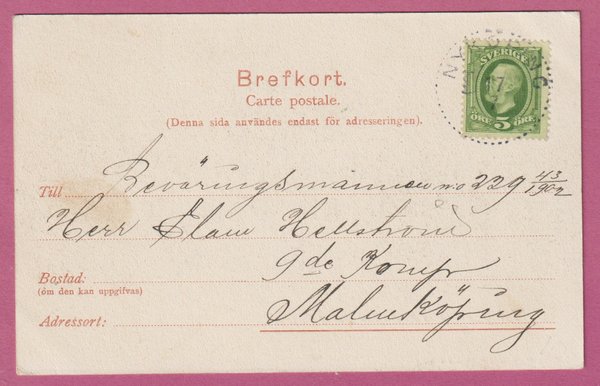 Brefkort.
Carte postale.
(Denna sida användes endast för adresseringen).
SVERIGE
ÖRE 5 ÖRE
17
Till Beväringsmannen no 229 43/1902
Herr Hellström
9de Komp
Bostad:
(om den kan uppgifvas)
Malmköping
Adressort: